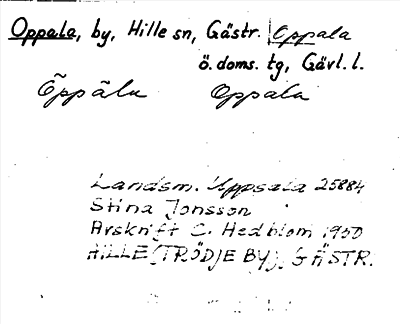 Oppala, by, Hille sn, Gästr. Oppala
ö. doms. tg, Gävl. l.
Õppãla Oppala
Landsm. Uppsala 25884
Stina Jonsson
Avskrift C. Hedblom 1950
HILLE (TRÖDJE BY), GÄSTR.